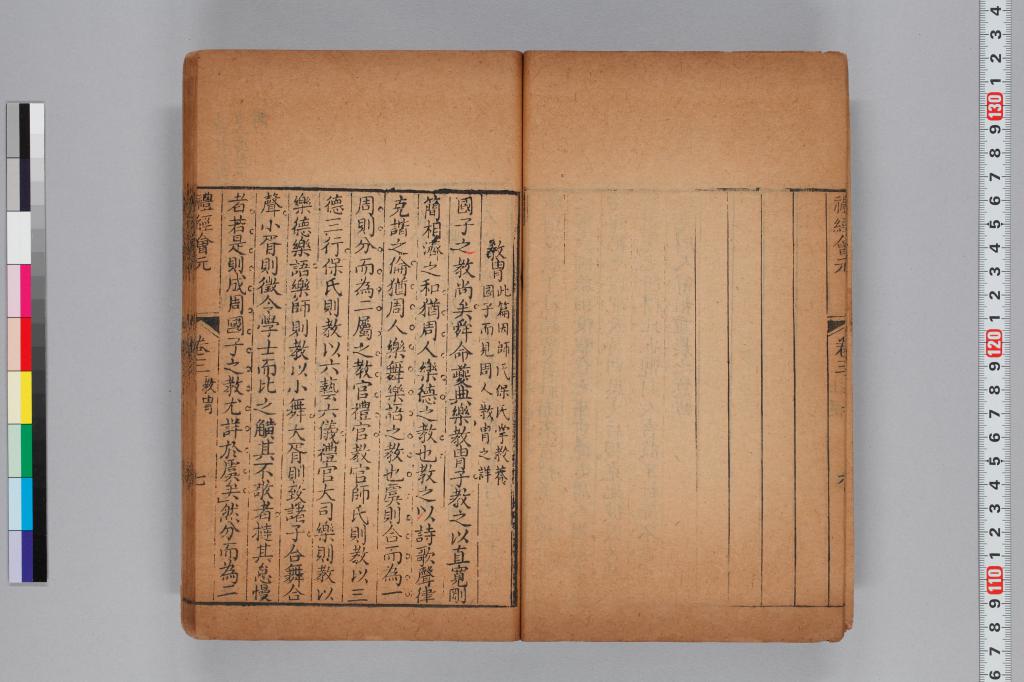 禮經會元
卷三
六
教冑此篇因師氏保氏掌教養
國子而見周人教冑之詳
國子之教尚矣舜命夔典樂教冑子教之以直寬剛
簡相濟之和猶周人樂德之教也教之以詩歌聲律
克諧之倫猶周人樂舞樂語之教也虞則合而為一
周則分而為二屬之教官禮官教官師氏則教以三
德三行保氏則教以六藝六儀禮官大司樂則教以
樂德樂語樂師則教以小舞大胥則致諸子合舞合
聲小胥則徵令學士而比之觵其不敬者撻其怠慢
者若是則成周國子之教尤詳於虞矣然分而為二
禮經會元
卷三
教冑
七